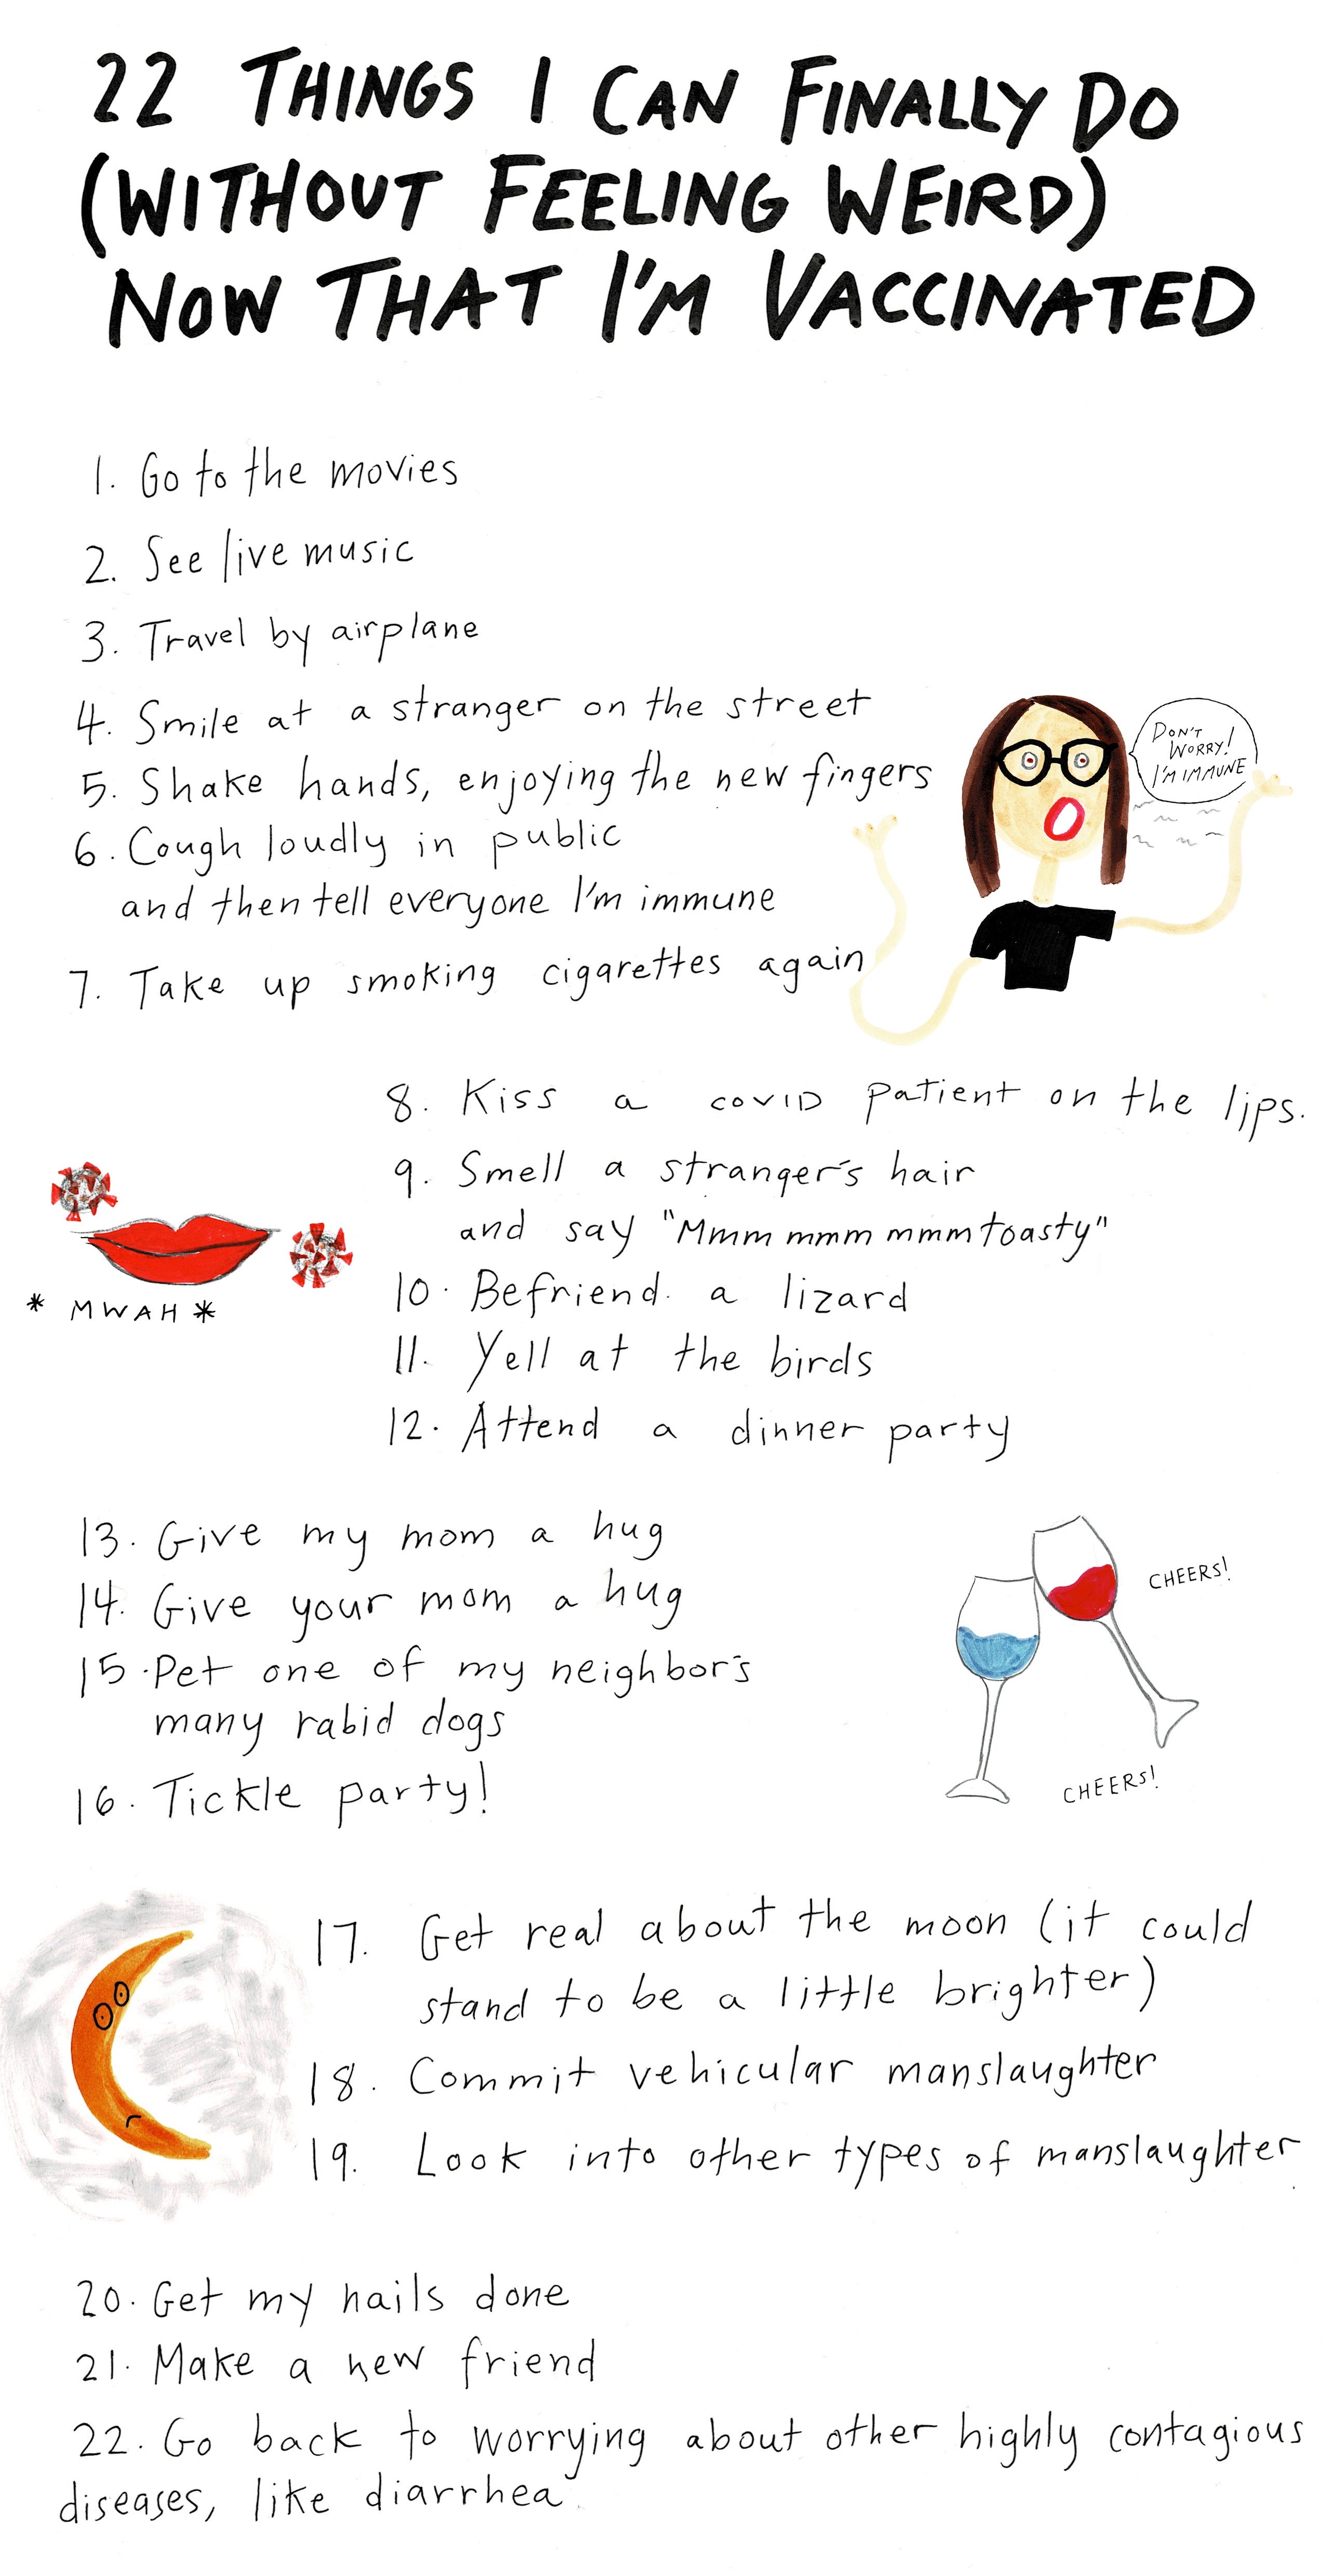 22 THINGS I CAN FINALLY DO
(WITHOUT FEELING WEIRD)
NOW THAT I'M VACCINATED
1. Go to the movies
2. See live music
3. Travel by airplane
4. Smile at a stranger on the street
5. Shake hands, enjoying the new fingers
6. Cough loudly in public
and then tell everyone I'm immune
7. Take up smoking cigarettes again
DON'T
WORRY!
I'M IMMUNE
8. Kiss a COVID patient on the lips.
9. Smell a stranger's hair
and say "Mmm mmm mmm toasty"
10. Befriend a lizard
11. Yell at the birds
12. Attend a dinner party
* MWAH *
13. Give my mom a hug
14. Give your mom a hug
15. Pet one of my neighbor's
many rabid dogs
16. Tickle party!
CHEERS!
CHEERS!
17. Get real about the moon (it could
stand to be a little brighter)
18. Commit vehicular manslaughter
19. Look into other types of manslaughter
20. Get my nails done
21. Make a new friend
22. Go back to worrying about other highly contagious
diseases, like diarrhea.